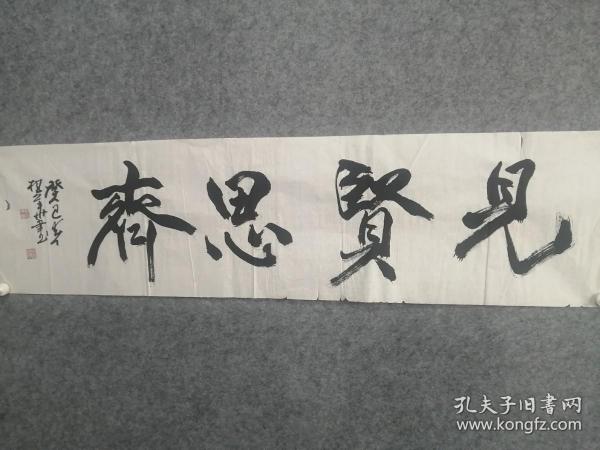 見賢思齊
癸巳冬
孔夫子旧書网
www.kongfz.com